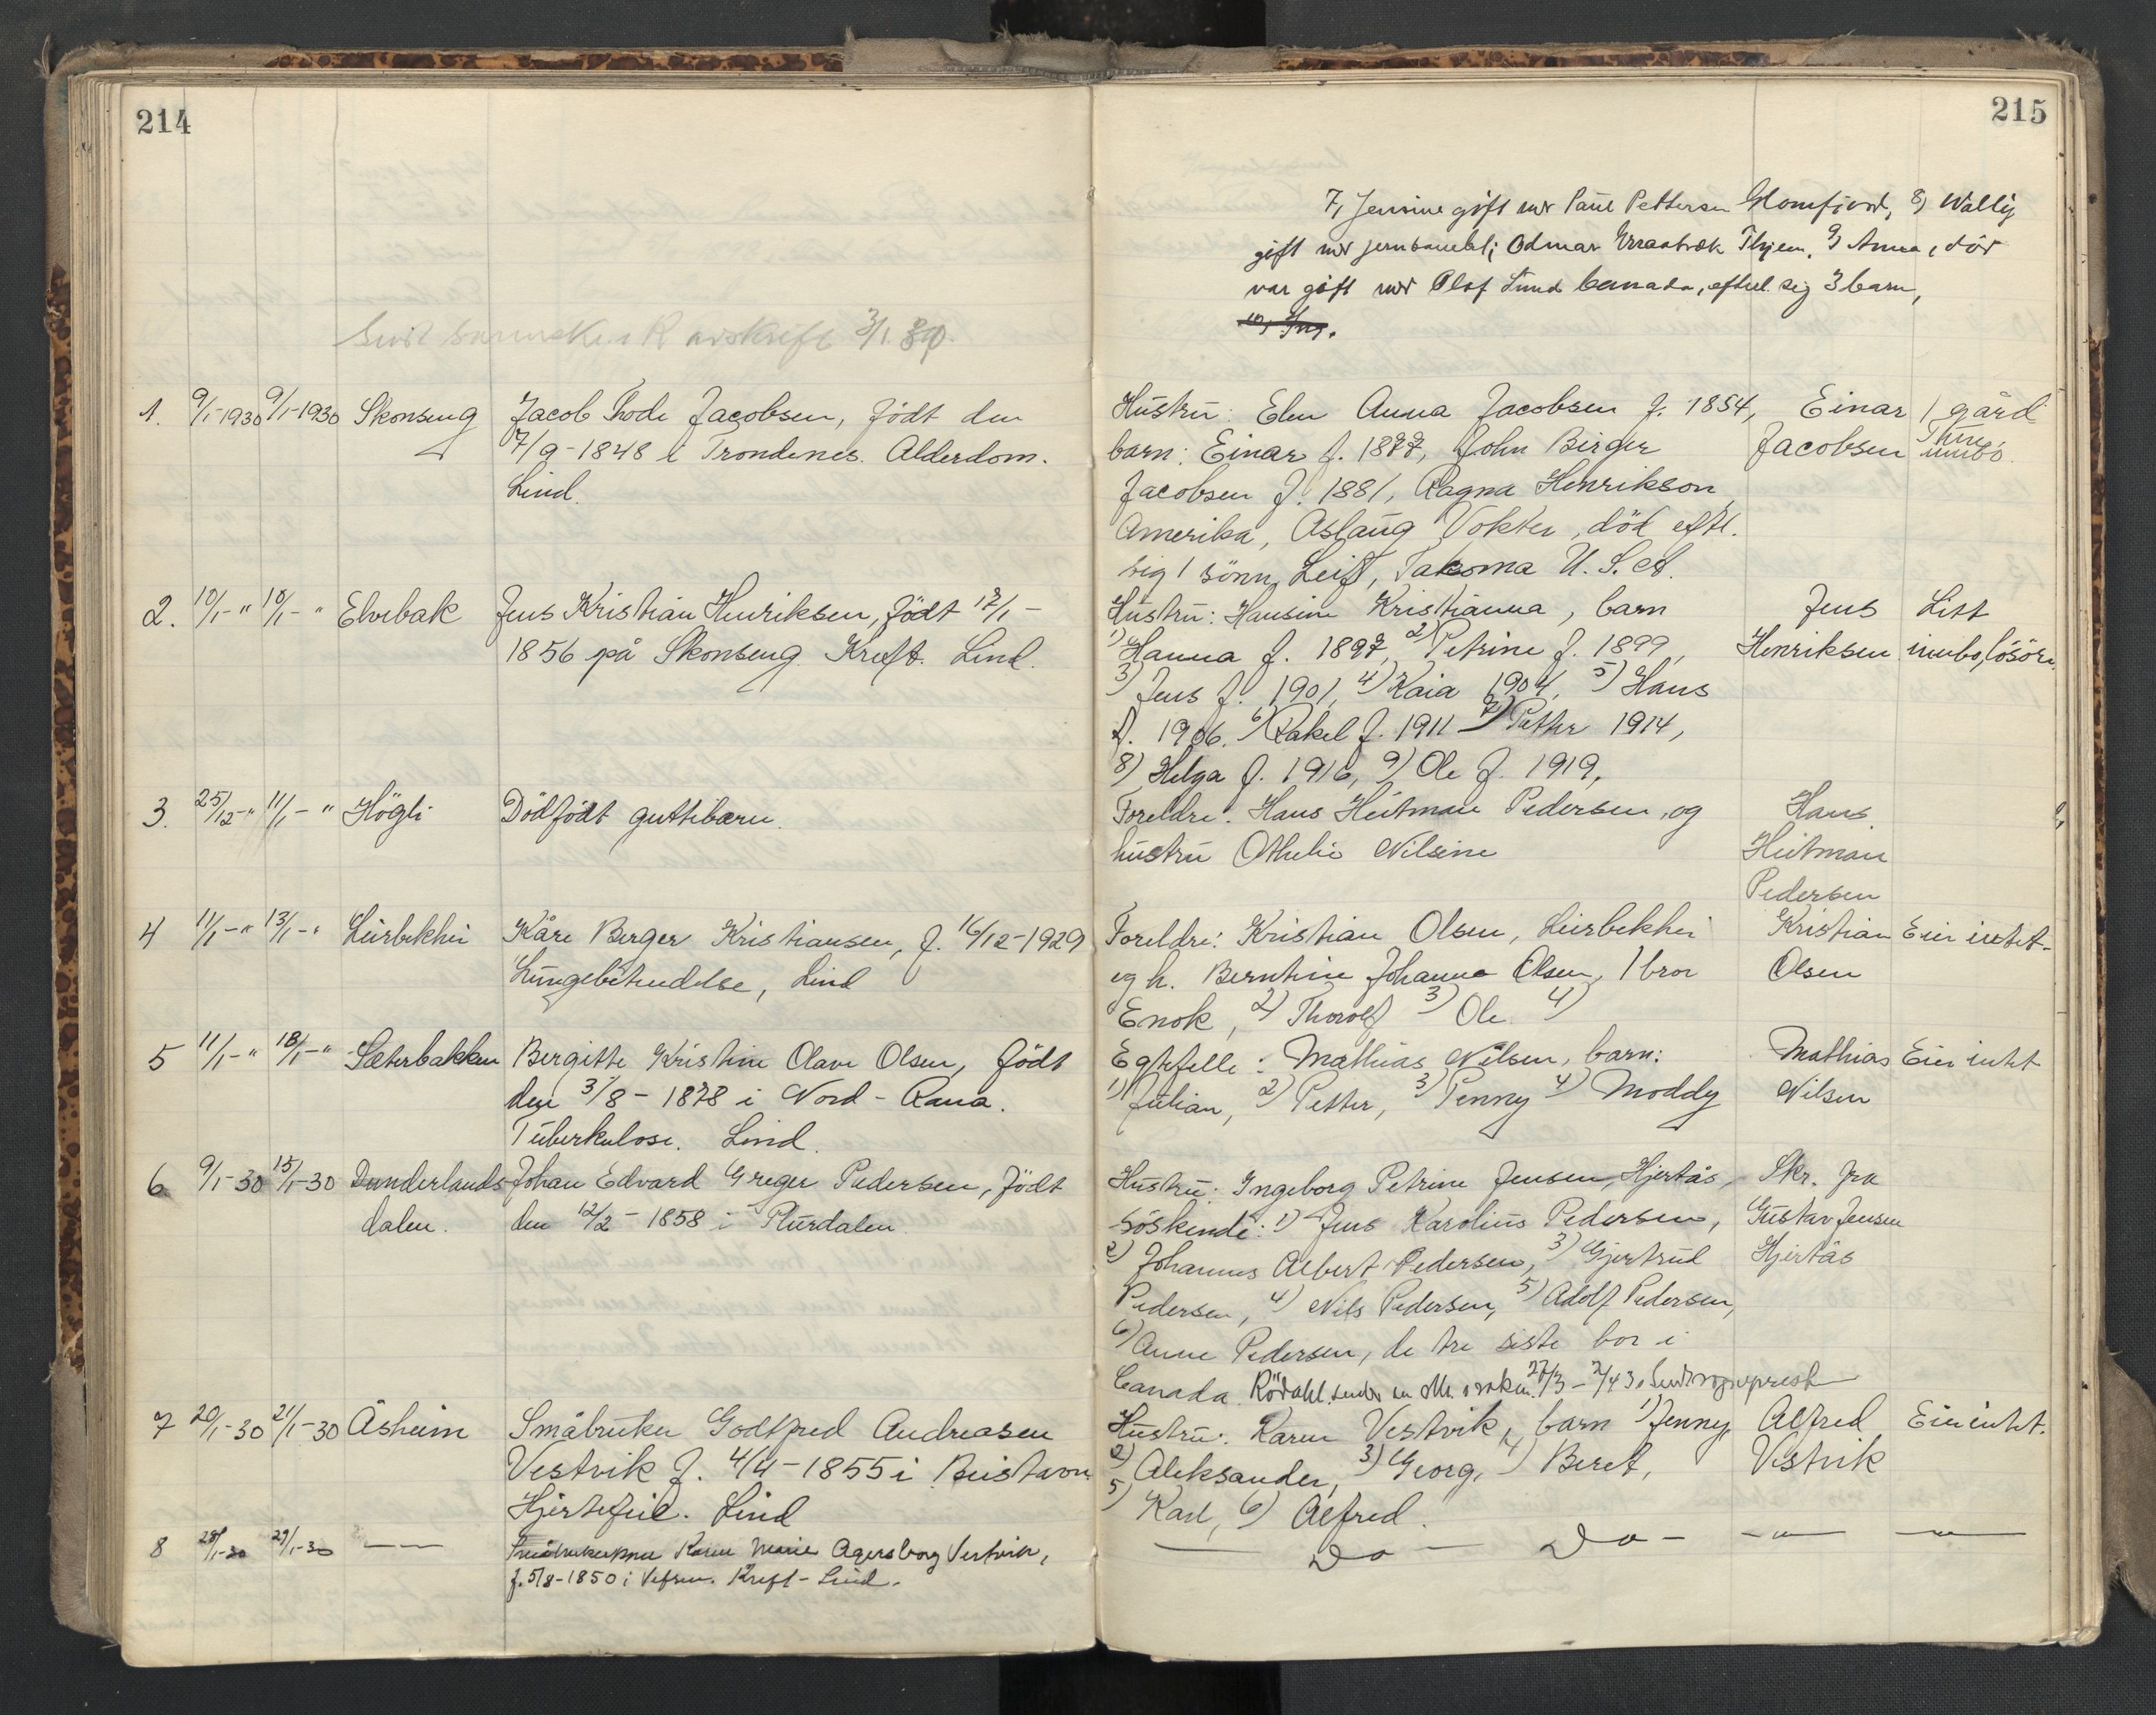 214
215
7, Jensine gift m Paul Pettersen Glomfjord, 8) Wally
gift m Odmar Thjem. 9) Anna, död
var gift m Olof Lund Canada, efterl. sig 3 barn,
avskrift 3/1 30.
1. 9/1-1930 9/1-1930 Skonseng Jacob Thode Jacobsen, födt den
7/9-1848 i Trondenes. Alderdom.
Lind.
Hustru: Elen Anna Jacobsen f. 1854,
barn: Einar f. 1877, John Birger
Jacobsen f. 1881, Ragna Henrikson,
Amerika, Aslaug Vokter, död eftl.
sig 1 sönn, Leif, Takoma U.S.A.
Einar
Jacobsen
1 gård
innbo.
2. 10/1-" 10/1-" Elvebak Jens Kristian Henriksen, födt 12/1-
1856 på Skonseng. Kreft. Lind.
Hustru: Hansine Kristianna, barn
1) Hanna f. 1897, 2) Petrine f. 1899,
3) Jens f. 1901, 4) Kaia 1904, 5) Hans
f. 1906. 6) Rakel f. 1911 7) Petter 1914,
8) Helga f. 1916, 9) Ole f. 1919,
Jens
Henriksen
Litt
innbo, lösöre
3. 25/12-" 11/1-" Högli Dödfödt guttebarn.
Foreldre: Hans Heitman Pedersen, og
hustru Othelie Nilsine
Hans
Heitman
Pedersen
4 11/1-" 13/1-" Leirbekhei Kåre Berger Kristiansen, f. 16/12-1929
Lungebetendelse, Lind
Foreldre: Kristian Olsen, Leirbekhei
og h. Berntine Johanna Olsen, 1 bror
Enok, 2) Thorolf 3) Ole 4)
Kristian
Olsen
Eier intet.
5 11/1-" 18/1-" Sæterbakken Bergitte Kristine Olave Olsen, födt
den 3/8-1878 i Nord-Rana.
Tuberkulose. Lind.
Egtefelle: Mathias Nilsen, barn:
1) Julian, 2) Petter, 3) Penny 4) Moddy
Mathias
Nilsen
Eier intet
6 9/1-30 15/1-30 Dunderlands- Johan Edvard Greger Pedersen, födt
dalen. den 12/2-1858 i Plurdalen.
Hustru: Ingeborg Petrine Jensen, Hjertås,
söskende: 1) Jens Karolius Pedersen,
2) Johannes Albert Pedersen, 3) Gjertrud
Pedersen, 4) Nils Pedersen, 5) Adolf Pedersen,
6) Anne Pedersen, de tre siste bor i
Canada.
Skr. fra
Gustav Jensen
Hjertås
7 20/1-30 21/1-30 Åsheim Småbruker Godtfred Andreasen
Vestvik f. 4/4-1855 i Beistavon
Hjertefeil. Lind
Hustru: Karen Vestvik, barn 1) Jenny,
2) Aleksander, 3) Georg, 4) Beret,
5) Karl, 6) Alfred.
Alfred
Vestvik
Eier intet.
8 28/1-30 29/1-30 — — Karen Marie Agersborg Vestvik,
f. 5/8-1850 i Vefsen. Kreft - Lind.
— Do — Do — — " — — " —